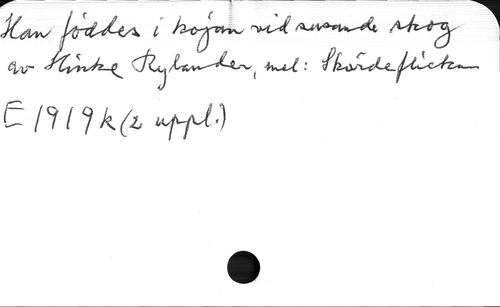 Han föddes i kojan vid susande skog
av Hinke Rylander, mel: Skördeflickan
E 1919 k (2 uppl.)